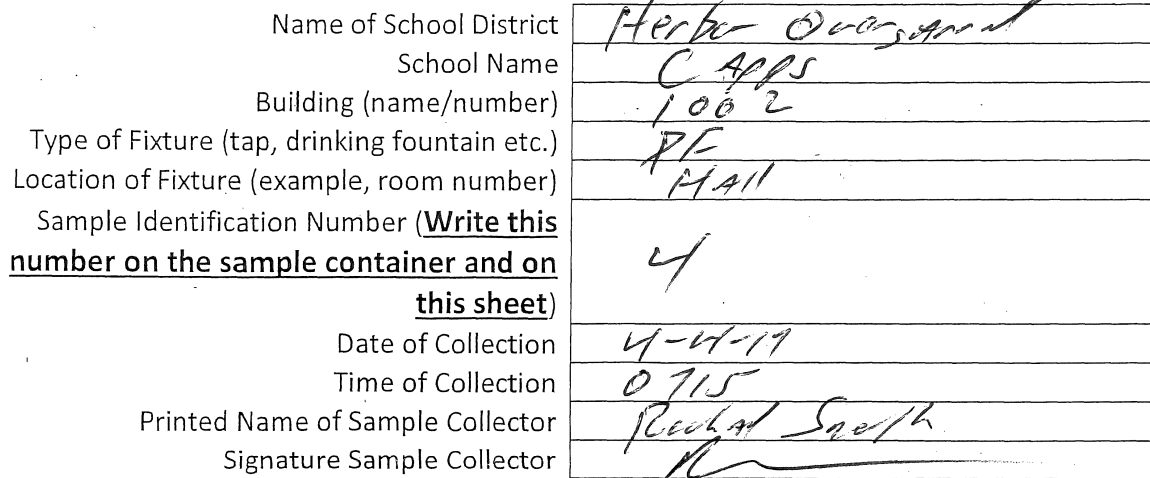 Name of School District Herber Overgaard
School Name C APPS
Building (name/number) 1002
Type of Fixture (tap, drinking fountain etc.) DF
Location of Fixture (example, room number) HAll
Sample Identification Number (Write this
number on the sample container and on
this sheet) 4
Date of Collection 4-4-19
Time of Collection 0715
Printed Name of Sample Collector
Signature Sample Collector